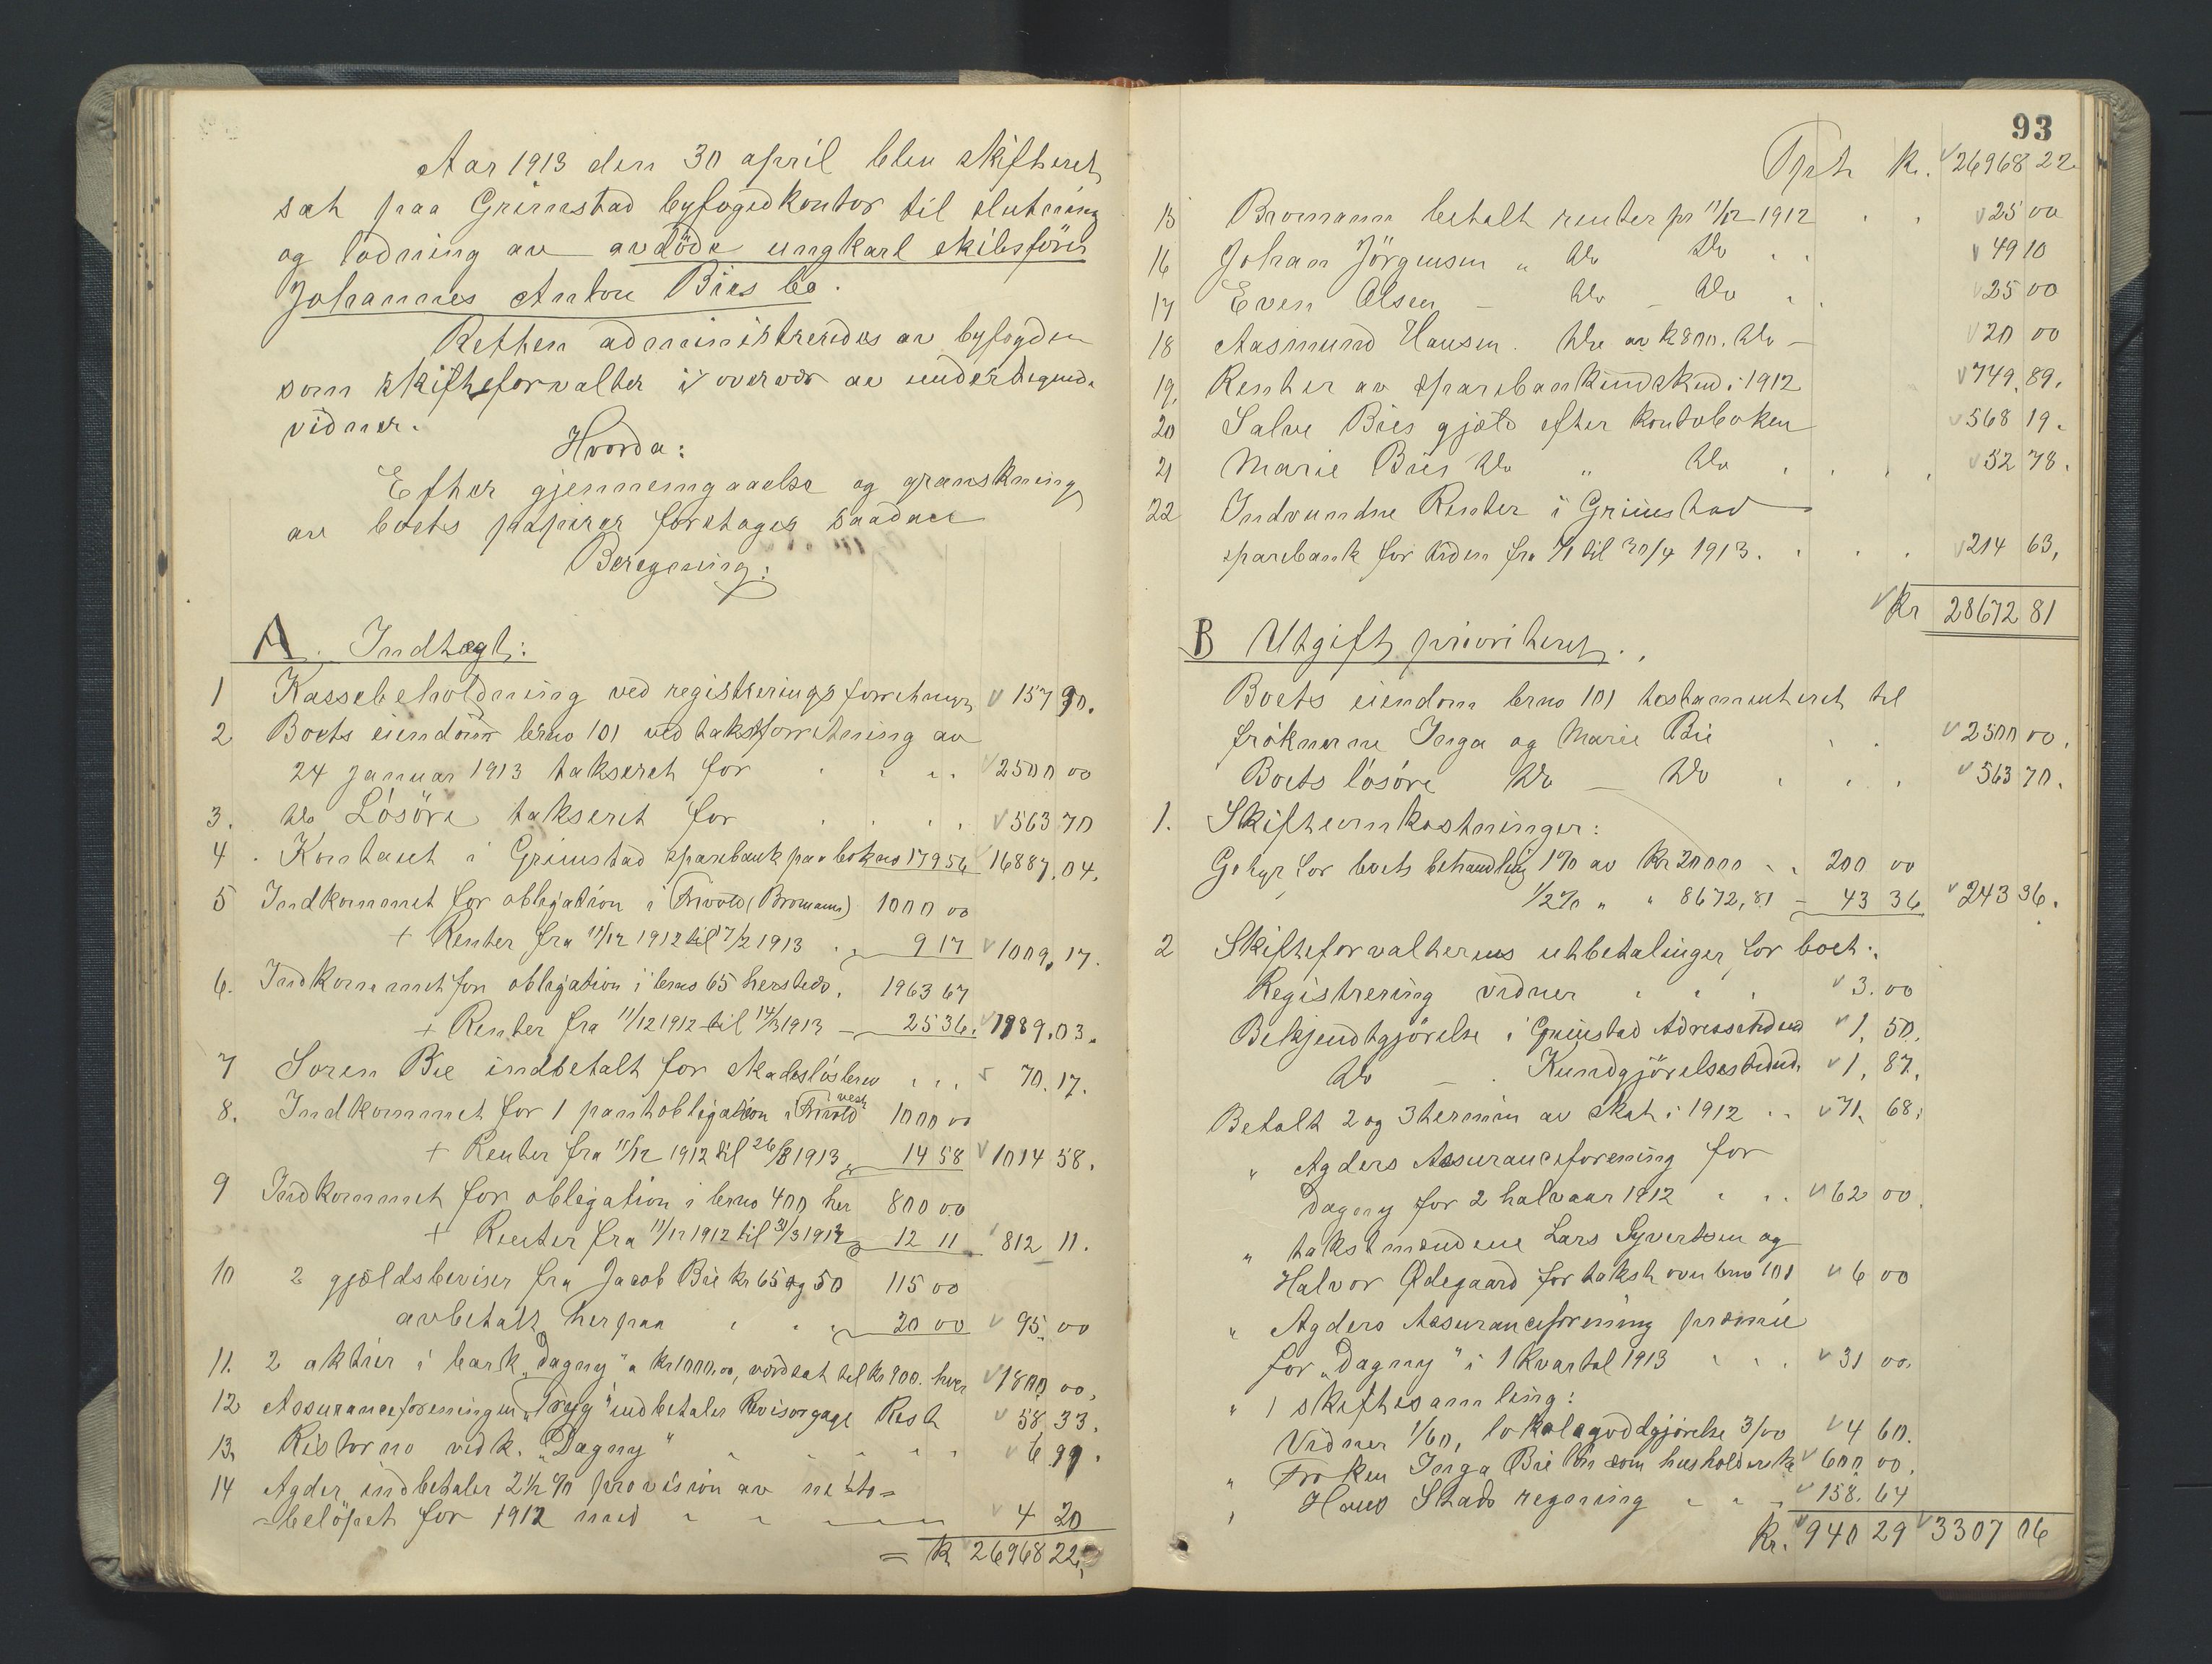 Aar 1913 den 30 april blev skifteret
sat paa Grimstad byfogedkontor til slutning
og lodning av avdöde ungkarl skibsförer
Johannes Anton Bies bo.
Retten administrertes av byfogden
som skifteforvalter i overvær av undertegnede
vidner.
Hvorda:
Efter gjennemgaaelse og granskning
av boets papirer foretages saadan
Beregning:
A. Indtægt:
1 Kassebeholdning ved registreringsforretningen 157 90.
2 Boets eiendom brno 101 ved takstforretning av
24 januar 1913 takseret for 2500 00
3. do Lösöre takseret for 563 70
4. Kontant i Grimstad sparebank paa bok no 17956 16887.04.
5 Indkommet for obligation i Frivold (Bromann) 1000 00
+ Renter fra 11/12 1912 til 7/2 1913 9 17 1009.17.
6. Indkommet for obligation i brno 65 hersteds. 1963 67
+ Renter fra 11/12 1912 til 14/3 1913 25 36. 1989.03.
7 Soren Bie indbetalt for skadeslösbrev 70.17.
8. Indkommet for 1 pantobligation i vest Frivold 1000 00
+ Renter fra 11/12 1912 til 26/3 1913 14 58 1014 58.
9 Indkommet for obligation i brno 400 her 800 00
+ Renter fra 11/12 1912 til 31/3 1913 12 11 812 11.
10 2 gjældsbeviser fra Jacob Bie kr 65 og 50 115 00
avbetalt herpaa 20 00 95.00
11. 2 aktier i bark „Dagny" a kr 1000.00, værdsat til kr 900. hver 1800 00,
12 Assuranceforeningen „Tryg" indbetaler Revisorgage Rest 58,33.
13. Ristorno vedk. „Dagny" 6 99.
14 Agder indbetaler 2½ % provision av netto=
=belöpet for 1912 med 4 20
= Kr 26968 22,
93
Trpt Kr. 26968 22
15 Bromann betalt renter pr 11/12 1912 25 00
16 Johan Jörgensen „ do do 49 10
17 Even Olsen — do — do 25 00
18 Aasmund Hansen. do av k 800. do — 20 00
19, Renter av sparebankindskud i 1912 749.89.
20 Salve Bies gjæld efter kontoboken 568 19.
21 Marie Bies do „ do 52 78.
22 Indvundne Renter i Grimstad
sparebank for tiden fra 1/1 til 30/4 1913. 214 63,
Kr 28672 81
B Utgift prioriteret.
Boets eiendom brno 101 testamenteret til
fröknerne Inga og Marie Bie 2500 00.
Boets lösöre do — do 563 70.
1. Skifteomkostninger:
Gebyr for boets behandling 1% av Kr 20000 200 00
1/2% „ „ 8672,81 — 43 36 243 36.
2 Skifteforvalterens utbetalinger for boet:
Registrering vidner 3.00
Bekjendtgjörelse i Grimstad Adressetidende 1,50.
do — Kundgjörelsestidend. 1,87.
Betalt 2 og 3 termin av skat i 1912 71.68.
„ Agders Assuranceforening for
Dagny for 2 halvaar 1912 62 00.
„ takstmændene Lars Syvertsen og
Halvor Ødegaard for takst over brno 101 6 00
„ Agders Assuranceforening præmie
for „Dagny" i 1 Kvartal 1913 31 00.
„ 1 skiftesamling:
Vidner 1/60, lokalegodtgjörelse 3/00 4 60.
„ Froken Inga Bie lön som husholderske 600 00.
„ Hans Stads regning 158.64
Kr. 940 29 3307 06